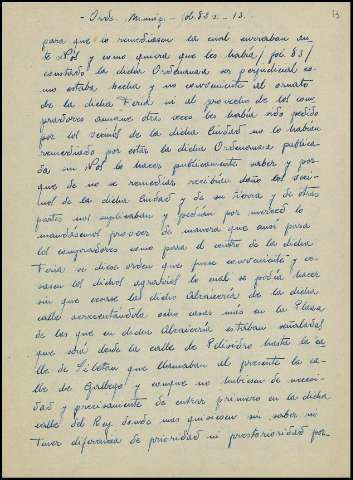 - Orde. Munic. - fol. 83 r. - 13.
13
para que lo remediasen la cual enviaban an-
te Nos y como quiera que les había / fol. 83 /
constado la dicha Ordenanza ser perjudicial co-
mo estaba hecha y no conveniente al ornato
de la dicha Feria ni al provecho de los com-
pradores aunque otras veces les había sido pedido
por los vecinos de la dicha Ciudad no lo habían
remediado por estar la dicha Ordenanza publica-
da sin Nos lo hacer publicamente saber y por-
que de no se remediar recibían daño los veci-
nos de la dicha Ciudad y de su tierra y de otras
partes nos suplicaban y pedían por merced lo
mandásemos proveer de manera que ansi para
los compradores como para el centro de la dicha
Feria se diese orden que fuese conveniente y ce-
sasen los dichos agravios lo cual se podía hacer
sin que cesase la dicha Alcaicería de la dicha
calle acrecentándola ocho casas más en la Plaza
de las que en dicha Alcaicería estaban señaladas
que será desde la calle de Pelisidro hasta la ca-
lle de Siletan que llamaban al presente la ca-
lle de Gallego y aunque no hubiesen de necesi-
dad y precisamente de entrar primero en la dicha
calle del Rey donde mas quisiesen sin saber ni
tener diferencia de prioridad ni prosterioridad por-